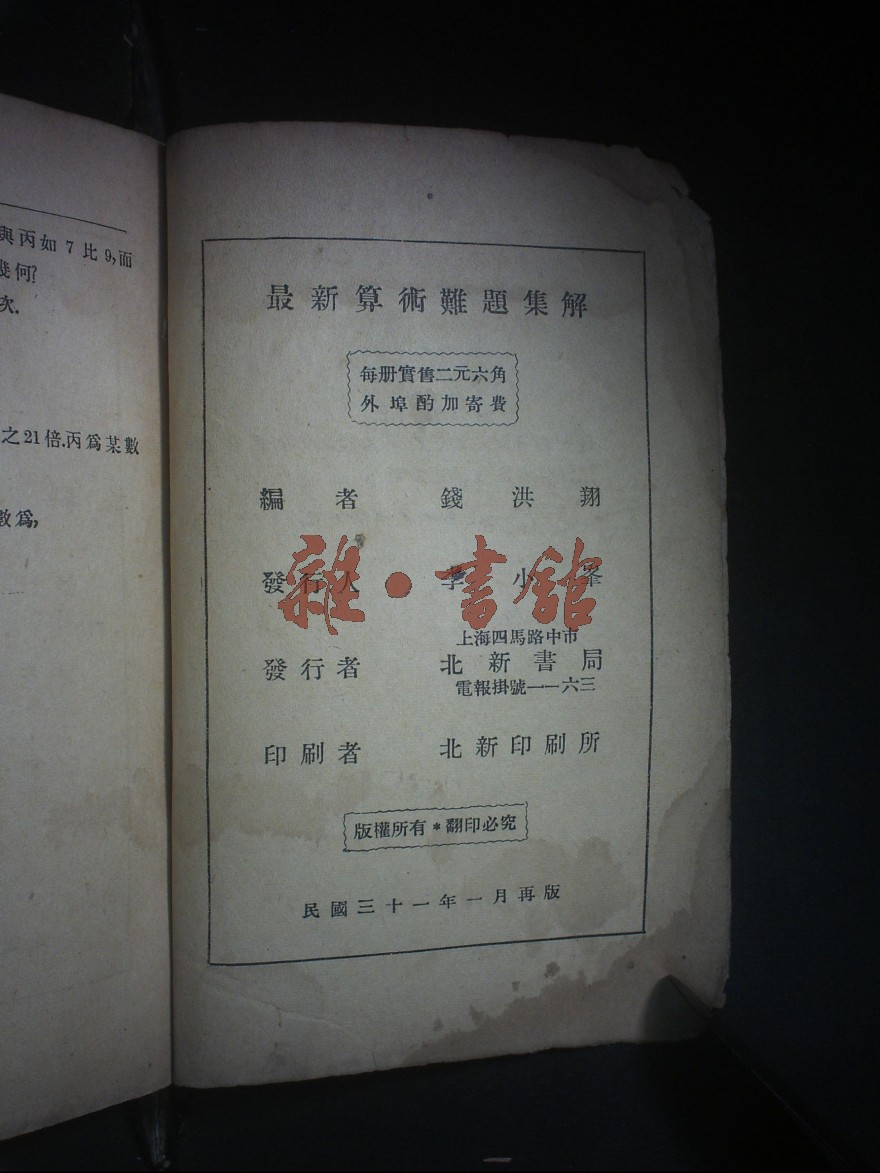 與丙如7比9,而
幾何?
次.
之21倍.丙爲某數
數爲,
最新算術難題集解
每册實售二元六角
外埠酌加寄費
編者 錢洪翔
發行人 李小峯
雜·書館
上海四馬路中市
發行者 北新書局
電報掛號一一六三
印刷者 北新印刷所
版權所有*翻印必究
民國三十一年一月再版